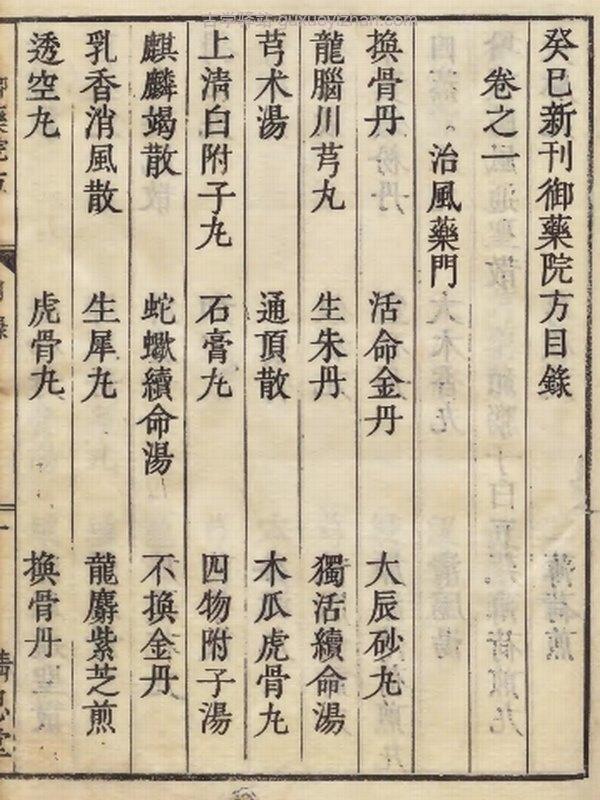 癸巳新刊御藥院方目錄
卷之一
治風藥門
換骨丹 活命金丹 大辰砂丸
龍腦川芎丸 生朱丹 獨活續命湯
芎术湯 通頂散 木瓜虎骨丸
上清白附子丸 石膏丸 四物附子湯
麒麟竭散 蛇蠍續命湯 不換金丹
乳香消風散 生犀丸 龍麝紫芝煎
透空丸 虎骨丸 換骨丹